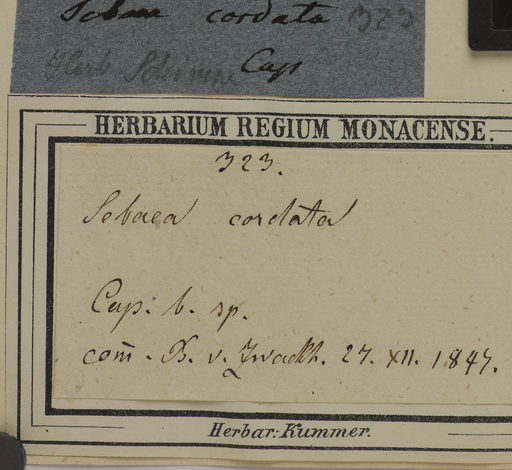 Sebaea cordata 323
Herb. Cap
HERBARIUM REGIUM MONACENSE.
323.
Sebaea cordata
Cap. b. sp.
com̄. B. v. Zwackh. 27. XII. 1847.
Herbar: Kummer.